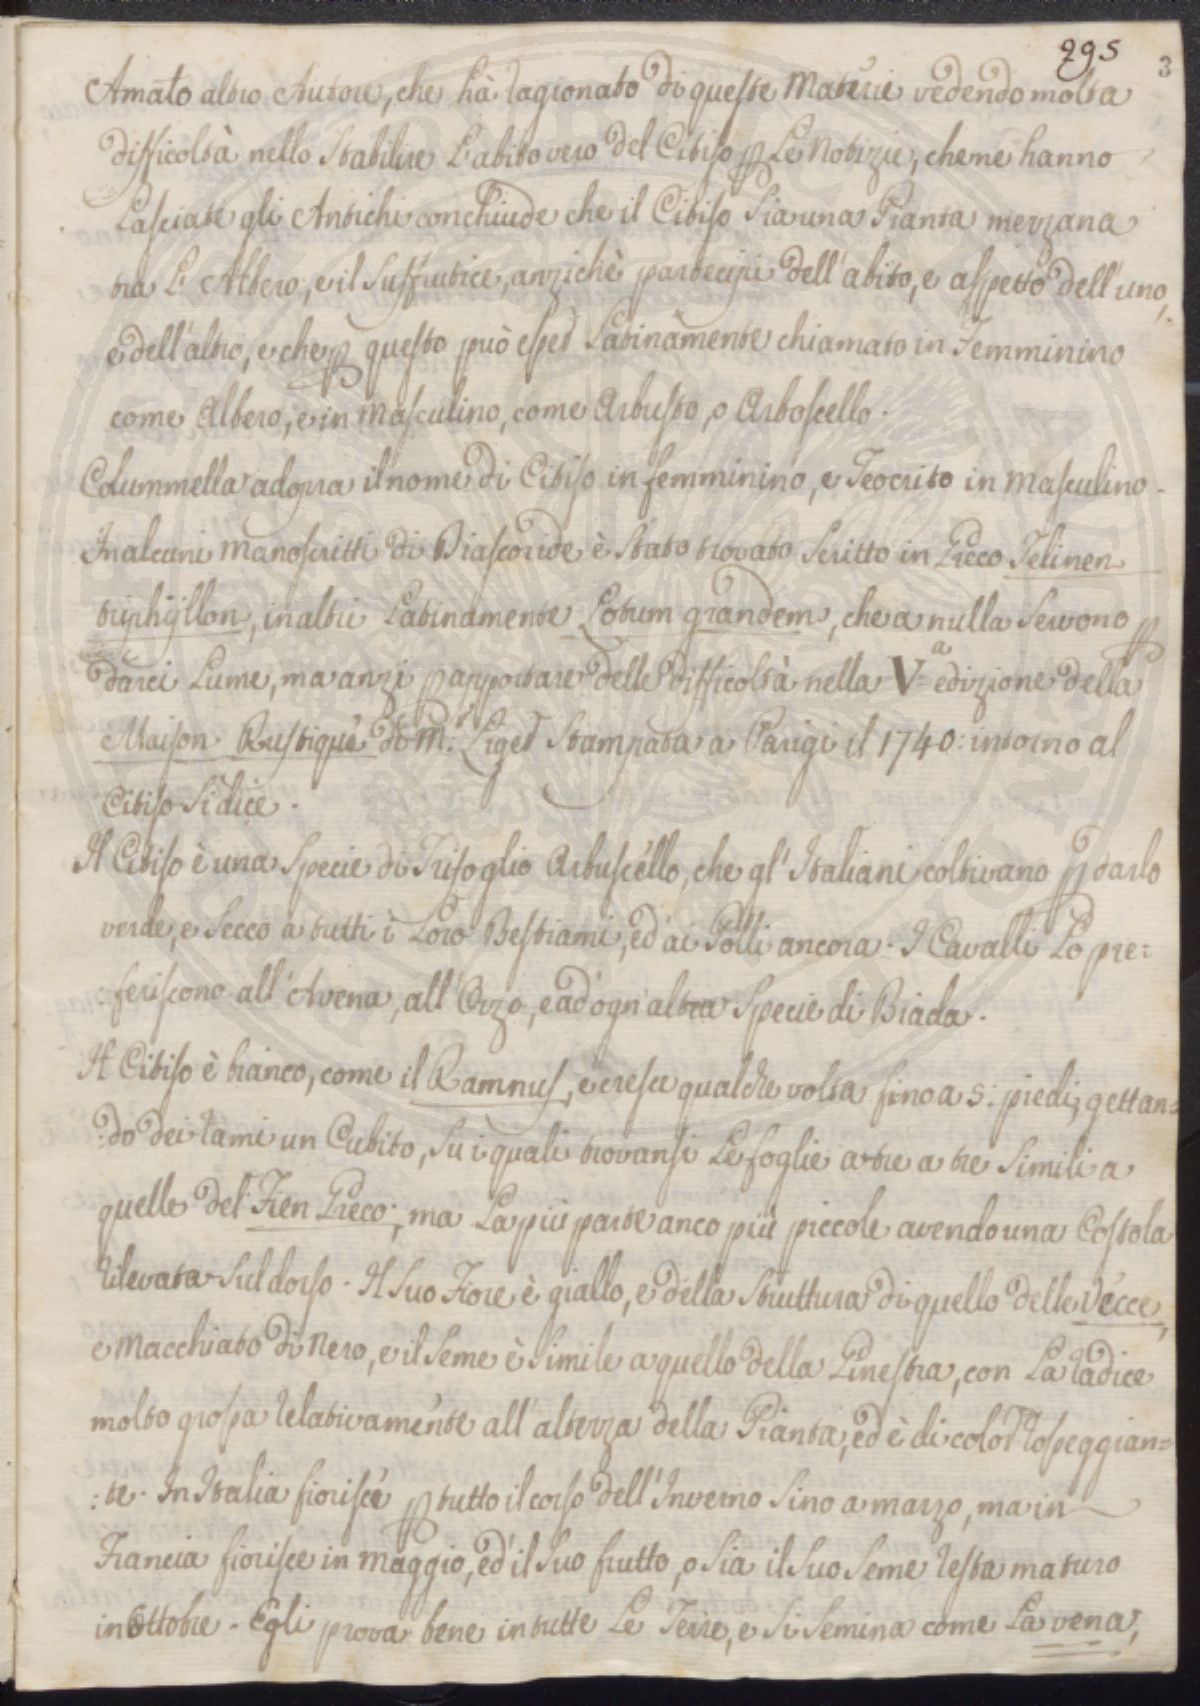 295 3
Amato altro Autore, che hà ragionato di queste Materie vedendo molta
difficoltà nello Stabilire L'abito vero del Citiso p Le Notizie, che ne hanno
Lasciate gli Antichi conchiude che il Citiso Sia una Pianta mezzana
tra L'Albero, e il Suffrutice, anzichè partecipi dell'abito, e aspetto dell'uno,
e dell'altro, e che p questo può esser Latinamente chiamato in Femminino
come Albero, e in Masculino, come Arbusto, o Arboscello.
Colummella adopra il nome di Citiso in femminino, e Teocrito in Masculino.
In alcuni Manoscritti di Diascoride è Stato trovato Scritto in Greco Telinen
triphÿllon, in altri Latinamente Lotum grandem, che a nulla Servono p
darci Lume, ma anzi p apportare delle difficoltà nella V.a edizione della
Maison Rustique di M.r Liger Stampata a Parigi il 1740: intorno al
Citiso Si dice.
Il Citiso è una Specie di Trifoglio Arbuscello, che gl'Italiani coltivano p darlo
verde, e Secco a tutti i Loro Bestiami, ed ai Polli ancora. I Cavalli Lo pre=
:feriscono all'Avena, all'Orzo, e ad ogn'altra Specie di Biada.
Il Citiso è bianco, come il Ramnus, e cresce qualche volta fino a 5: piedi, gettan=
:do dei rami un Cubito, Su i quali trovansi Le foglie a tre a tre Simili a
quelle del Fien Greco, ma La più parte anco più piccole avendo una Costola
rilevata Sul dorso. Il Suo Fiore è giallo, e della Struttura di quello delle Vecce,
e Macchiato di Nero, e il Seme è Simile a quello della Ginestra, con La radice
molto grossa relativamente all'altezza della Pianta, ed è di color rosseggian=
:te. In Italia fiorisce p tutto il corso dell'Inverno Sino a marzo, ma in
Francia fiorisce in Maggio, ed il Suo frutto, o Sia il Suo Seme resta maturo
in Ottobre. Egli prova bene in tutte Le Terre, e Si Semina come La vena,